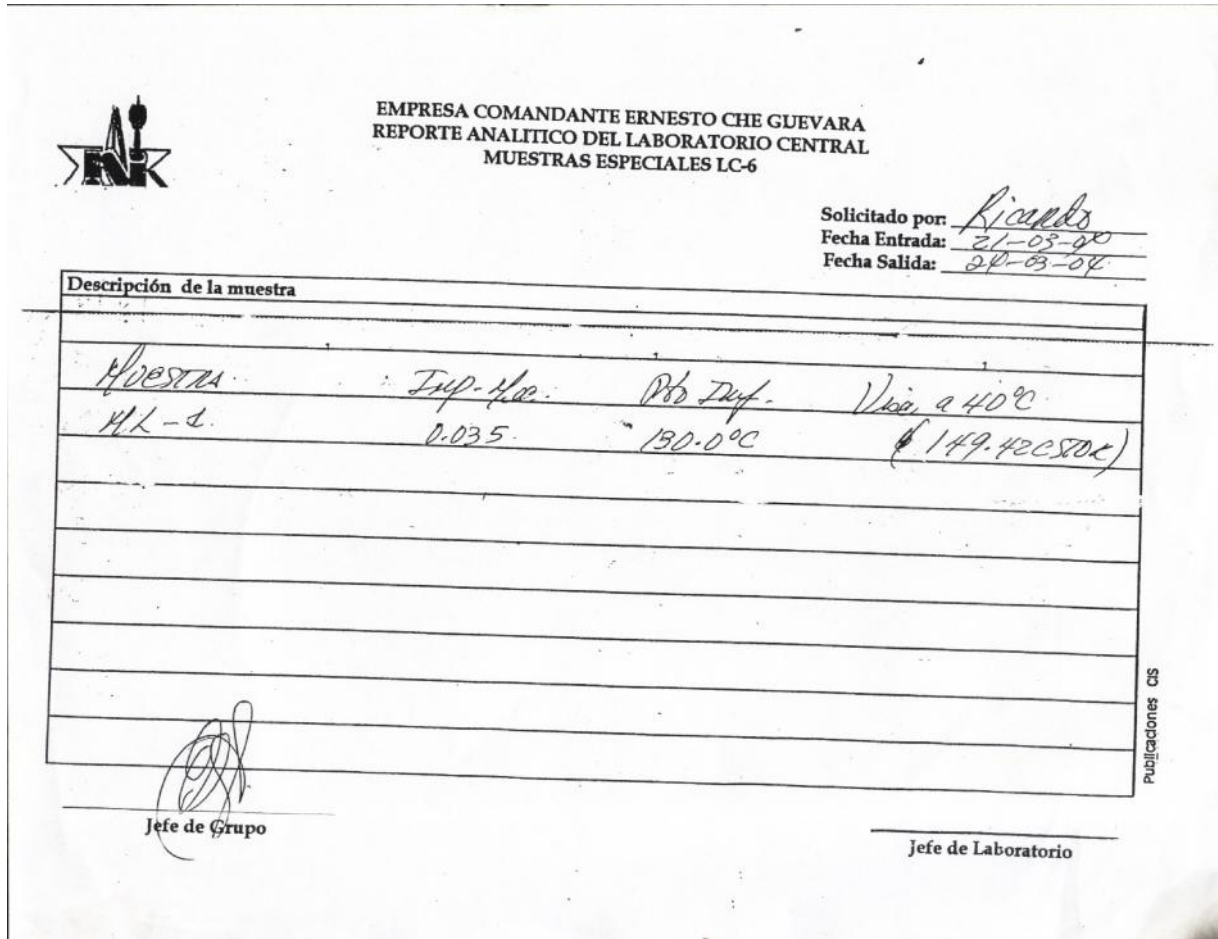 EMPRESA COMANDANTE ERNESTO CHE GUEVARA
REPORTE ANALITICO DEL LABORATORIO CENTRAL
MUESTRAS ESPECIALES LC-6
Solicitado por: Ricardo
Fecha Entrada: 21-03-
Fecha Salida: 24-03-04
Descripción de la muestra
Muestra. Imp-Mec. Pto Inf. Visc, a 40°C
ML-1. 0.035. 130.0°C (149.42 CSTOK)
Publicaciones CIS
Jefe de Grupo
Jefe de Laboratorio